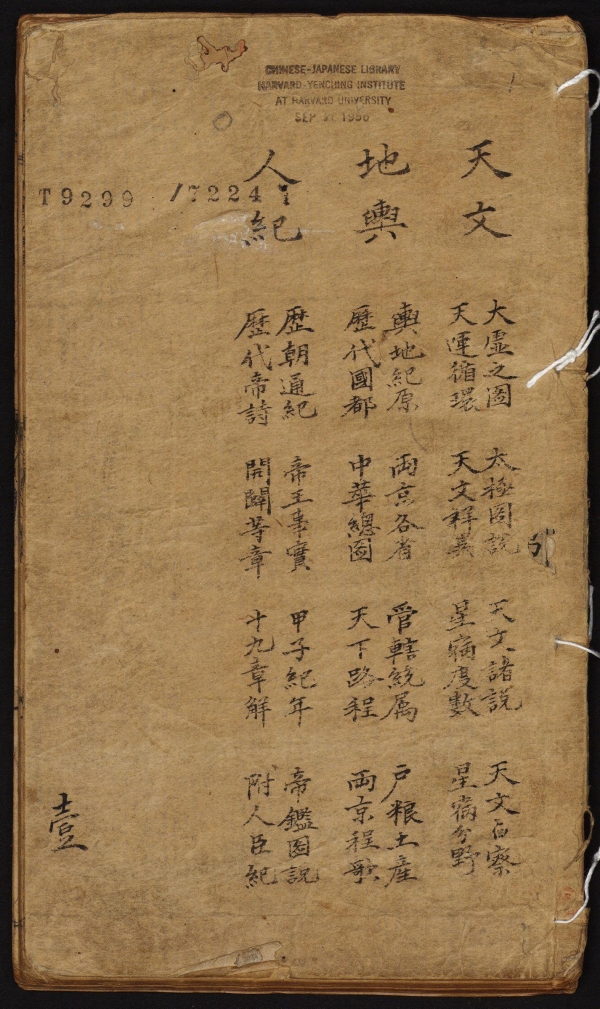 CHINESE-JAPANESE LIBRARY
HARVARD-YENCHING INSTITUTE
AT HARVARD UNIVERSITY
SEP 21 1950
T9299 /7224 1
天文
大虛之圖 太極圖說 天文諸說 天文察
天運循環 天文祥異 星宿度數 星宿分野
地輿
輿地紀原 両京各省 管轄統属 户粮土産
歷代國都 中華總圖 天下路程 両京程歌
人紀
歷朝通紀 帝王事實 甲子紀年 帝鑑圖説
歷代帝詩 開闢等章 十九章解 附人臣紀
壹